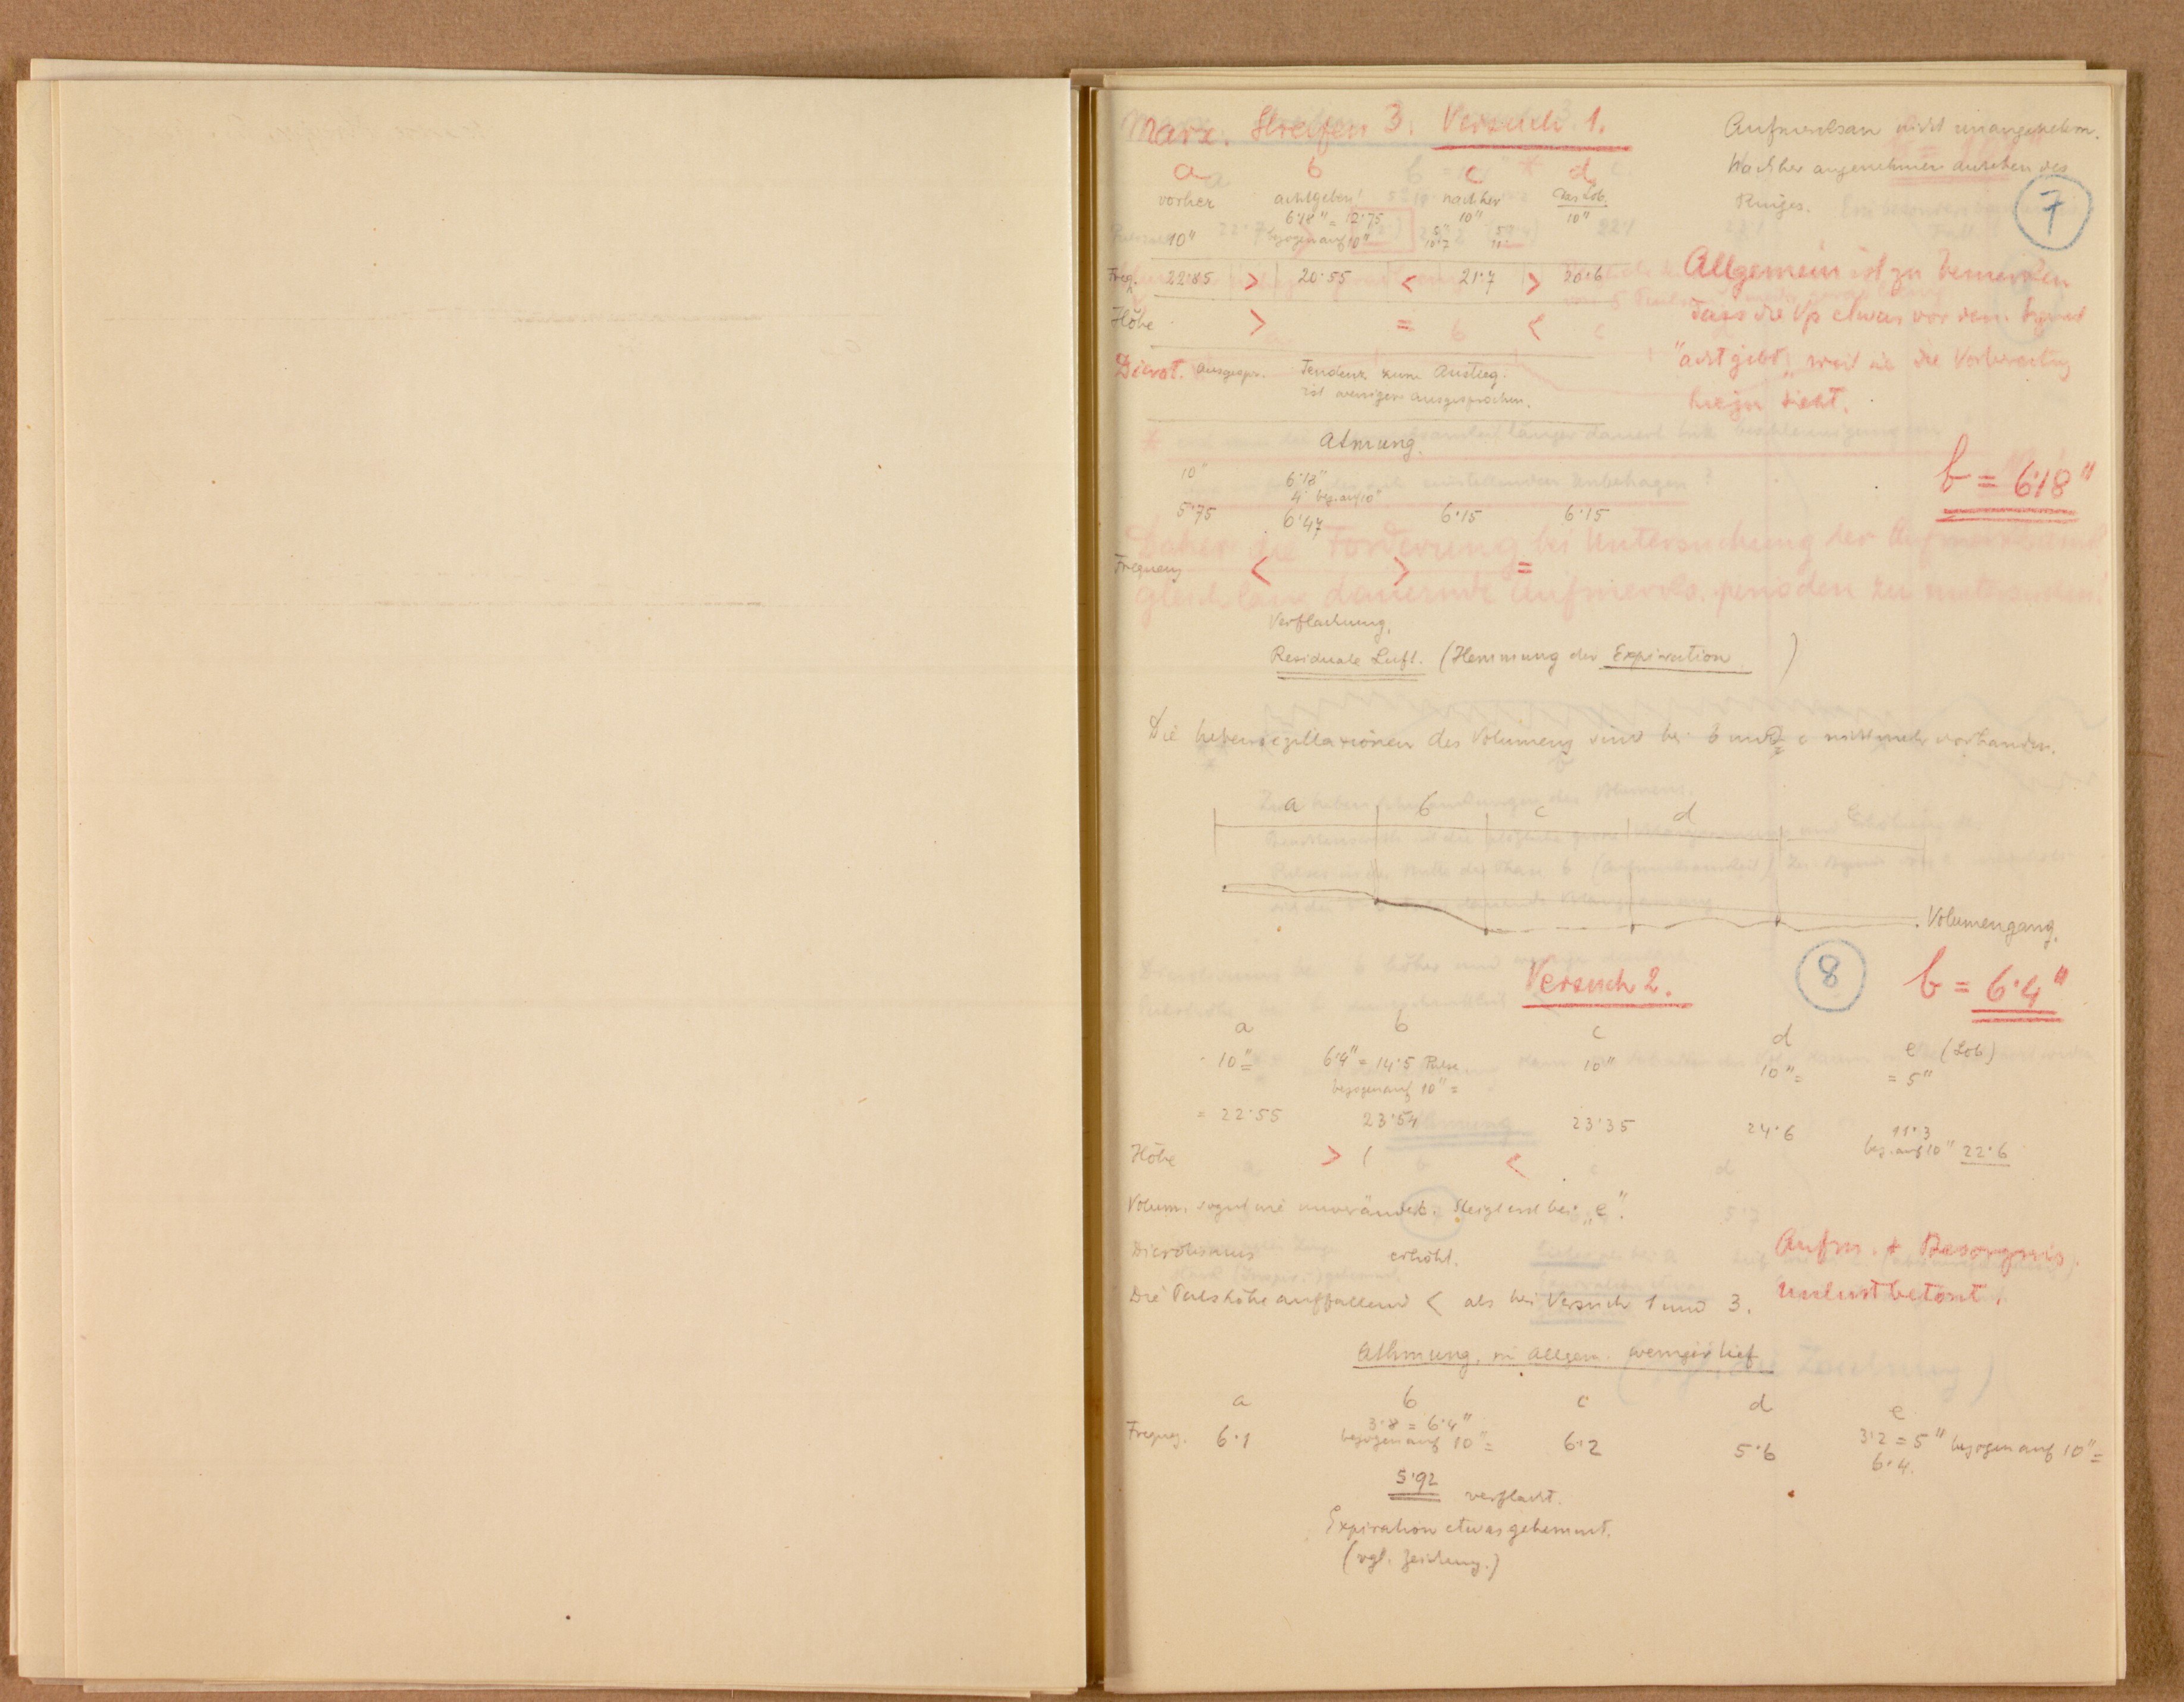 Marx. Streifen 3. Versuch 1.
Aufmerksam nicht unangenehm.
Nachher angenehmes Ansehen des
Ringes.
7
a b c d
vorher achtgeben! nachher des Lob.
10" 6·18" = 12·75 10" 10"
bezogen auf 10"
Freq. 22·85 > 20·55 < 21·7 > 20·6
Höhe > = <
Allgemein ist zu bemerken
dass die Vp etwas vor dem
"acht gibt", weil sie die Vorbereitung
hiezu sieht.
Dicrot. ausgespr. Tendenz zum Anstieg.
ist weniger ausgesprochen.
Atmung.
b = 6·18"
10" 6·18"
4 bez. auf 10"
5·75 6·47 6·15 6·15
Frequenz < > =
Verflachung.
Residuale Luft. (Hemmung der Expiration )
Die des Volumens sind bei b und c nicht mehr vorhanden.
a b c d
Volumengang.
Versuch 2.
8
b = 6·4"
a b c d e (Lob)
10" = 6·4" = 14·5 Pulse 10" 10" = = 5"
bezogen auf 10" =
= 22·55 23·54 23·35 24·6 11·3
bez. auf 10" 22·6
Höhe > <
Volum. sogut wie unverändert. Steigt erst bei „e".
Dicrotismus erhöht.
Aufm. + Besorgnis.
Die Pulshöhe auffallend < als bei Versuch 1 und 3.
Unlustbetont.
Athmung, im allgem. weniger tief
a b c d e
3·8 = 6·4"
Frequz. 6·1 bezogen auf 10" = 6·2 5·6 3·2 = 5" bezogen auf 10" =
6·4.
5·92 verflacht.
Expiration etwas gehemmt.
(vgl. Zeichnung.)